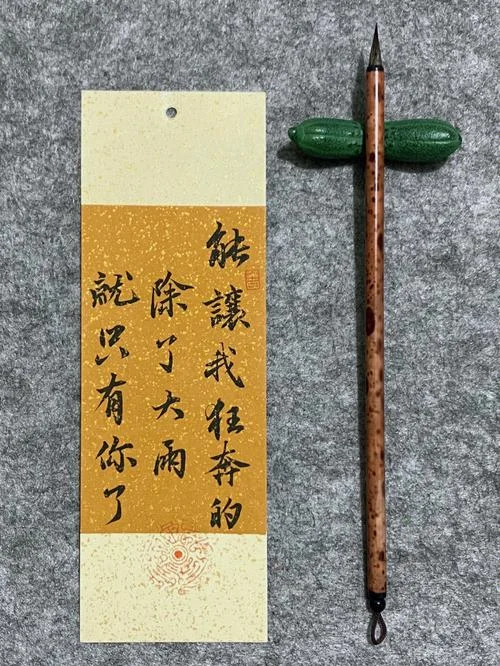 能讓我狂奔的
除了大雨
就只有你了